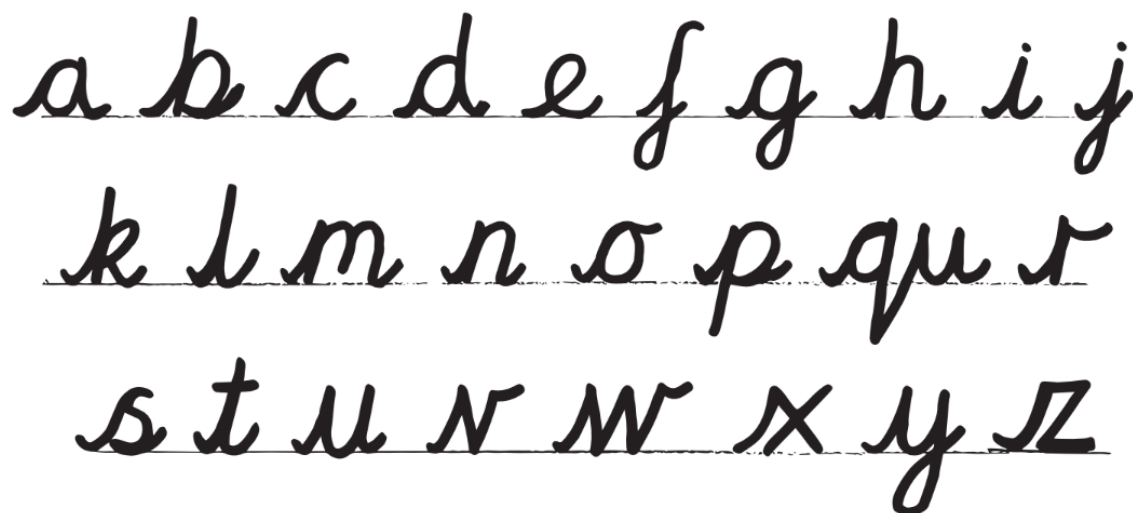 a b c d e f g h i j
k l m n o p qu r
s t u v w x y z